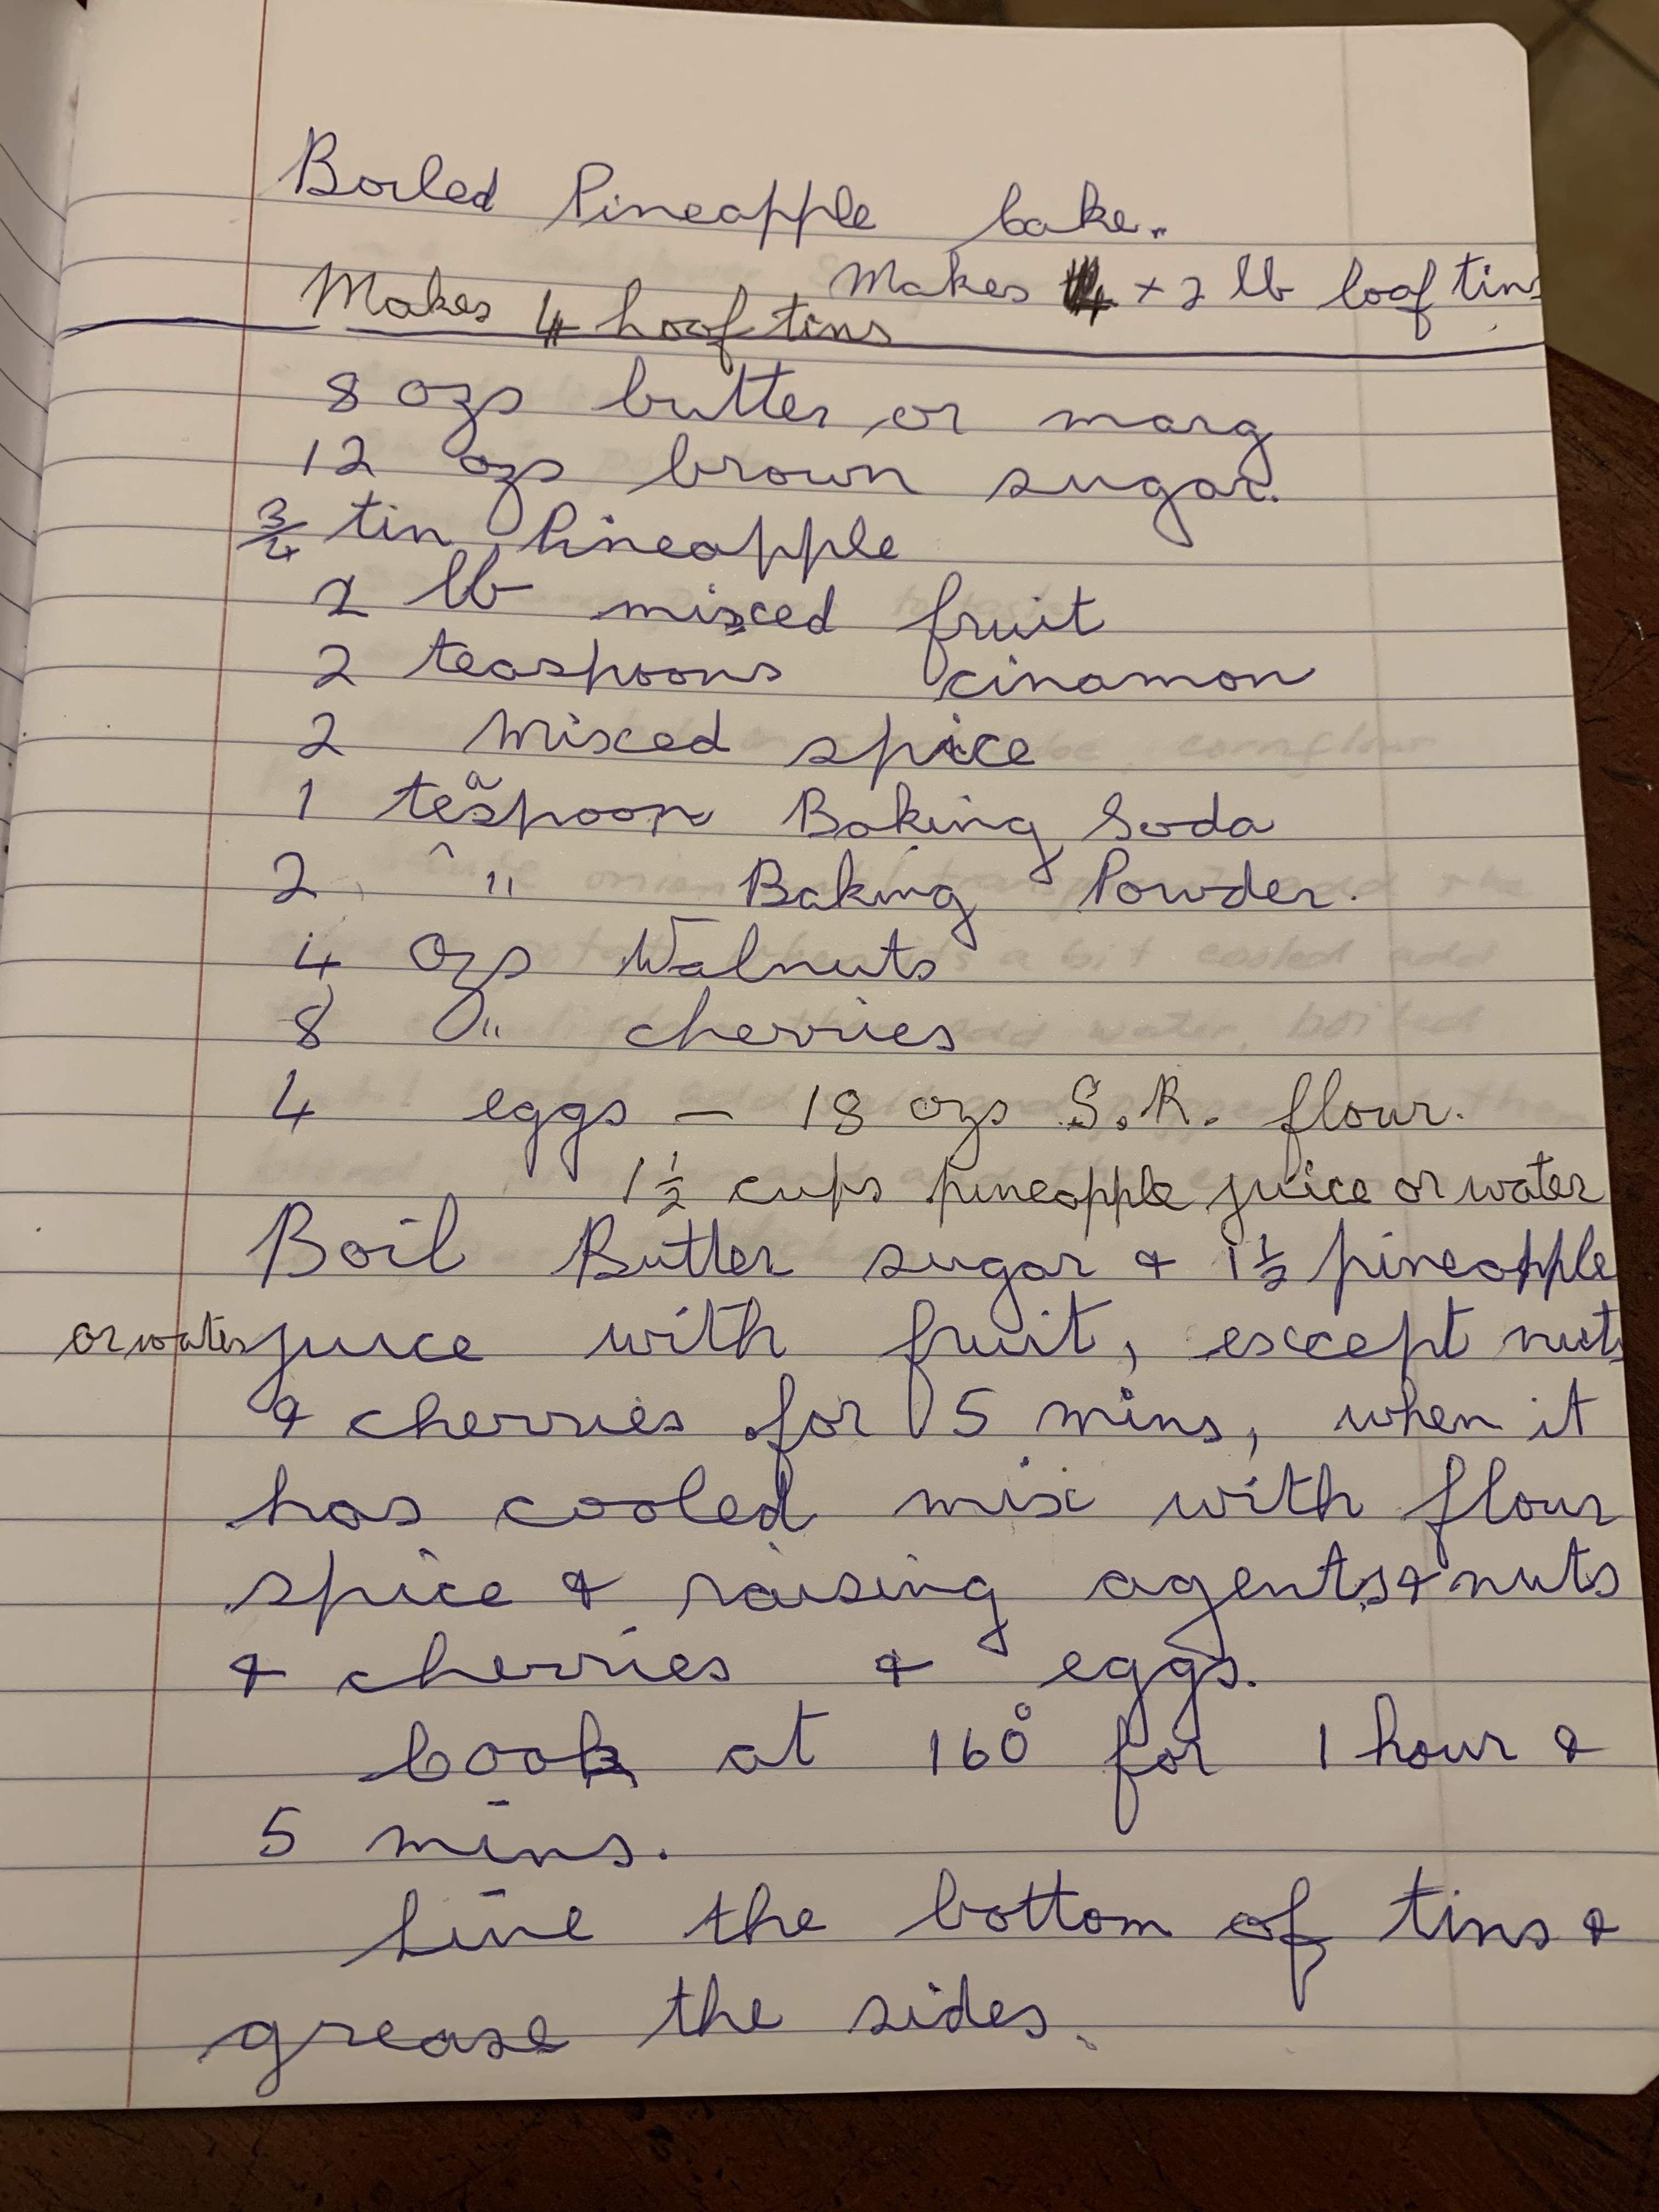 Boiled Pineapple Cake.
Makes 4 x 2 lb loaf tins
Makes 4 Loaf tins
8 ozs butter or marg
12 ozs brown sugar.
3/4 tin Pineapple
2 lb mixed fruit
2 teaspoons cinamon
2 Mixed spice
1 teaspoon Baking Soda
2 " Baking Powder.
4 Ozs Walnuts
8 " cherries
4 eggs – 18 ozs S.R. flour.
1 1/2 cups pineapple juice or water
Boil Butter sugar & 1 1/2 pineapple
or water juice with fruit, except nuts
& cherries for 5 mins, when it
has cooled mix with flour
spice & raising agents & nuts
& cherries & eggs.
Cook at 160° for 1 hour &
5 mins.
Line the bottom of tins &
grease the sides.